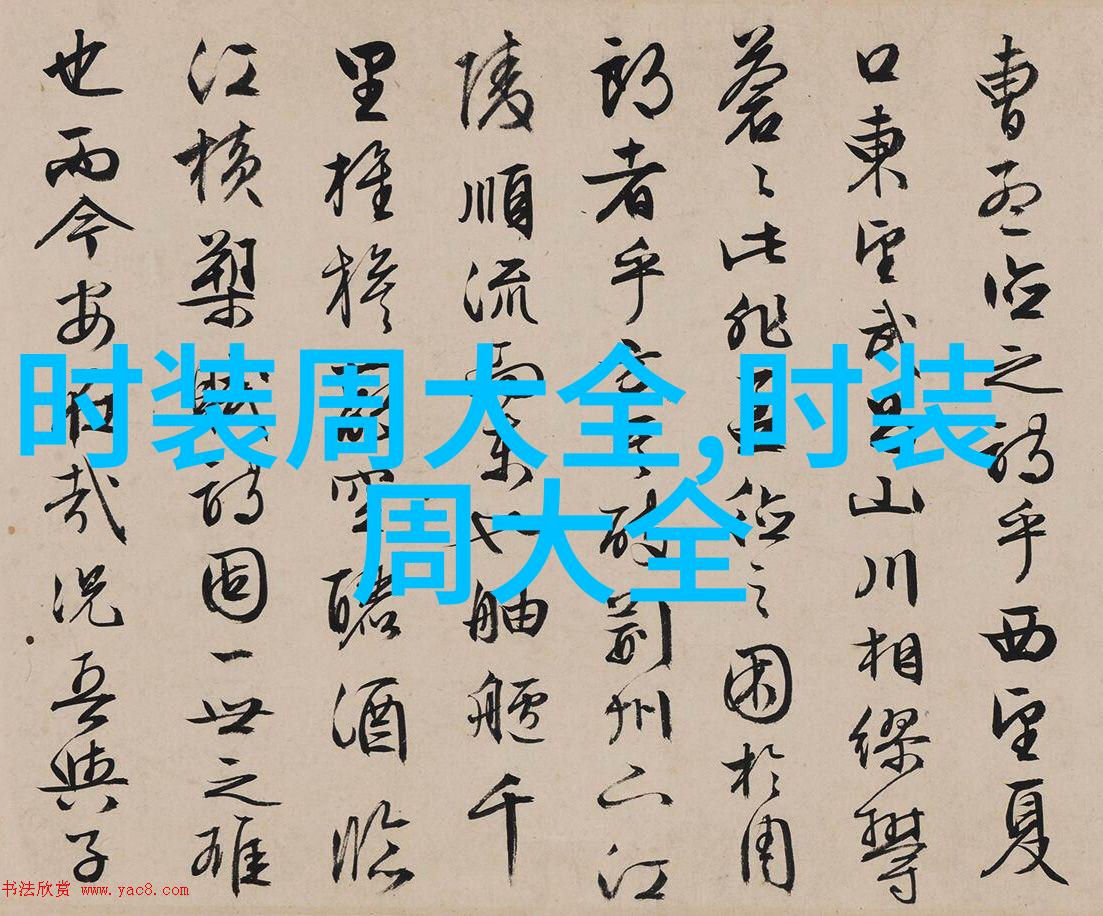 曹孟德之詩乎西望夏
口東望武昌山川相繆鬱
蒼〻此非孟德之困於周
郎者乎方其破荊州下江
陵順流而東也舳艫千
里旌旗蔽空釃酒臨
江橫槊賦詩固一世之雄
也而今安在哉況吾與子
时装周大全,时装
周大全
书法欣赏 www.yac8.com